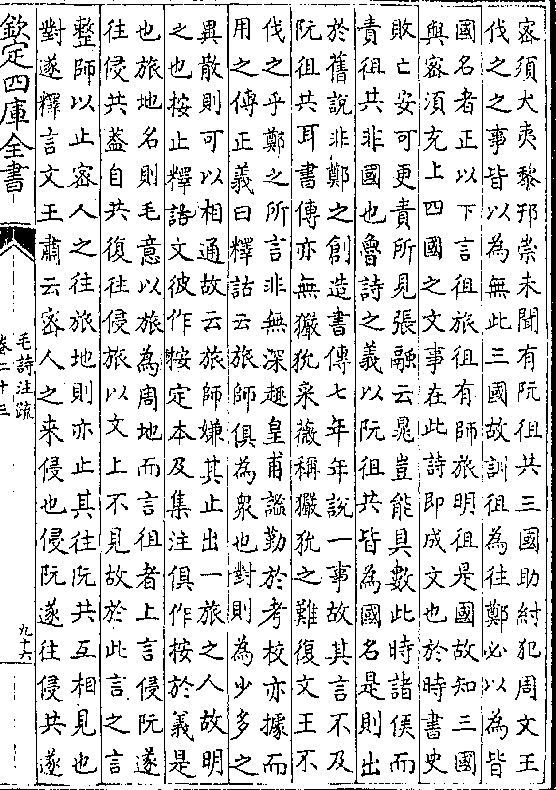 密須犬夷黎邘崇未聞有阮徂共三國助紂犯周文王
伐之之事皆以為無此三國故訓徂為往鄭必以為皆
國名者正以下言徂旅徂有師旅明徂是國故知三國
與密須充上四國之文事在此詩即成文也於時書史
敗亡安可更責所見張融云晁豈能具數此時諸侯而
責徂共非國也魯詩之義以阮徂共皆為國名是則出
於舊說非鄭之創造書傳七年年說一事故其言不及
阮徂共耳書傳亦無玁狁采薇稱玁狁之難復文王不
伐之乎鄭之所言非無深趣皇甫謐勤於考校亦據而
用之傳正義曰釋詁云旅師俱為衆也對則為少多之
異散則可以相通故云旅師嫌其止出一旅之人故明
之也按止釋詁文彼作按定本及集注俱作按於義是
也旅地名則毛意以旅為周地而言徂者上言侵阮遂
往侵共葢自共復往侵旅以文上不見故於此言之言
整師以止密人之往旅地則亦止其往阮共互相見也
對遂釋言文王肅云密人之来侵也侵阮遂往侵共遂
欽定四庫全書
毛詩注疏
卷二十三
九十六